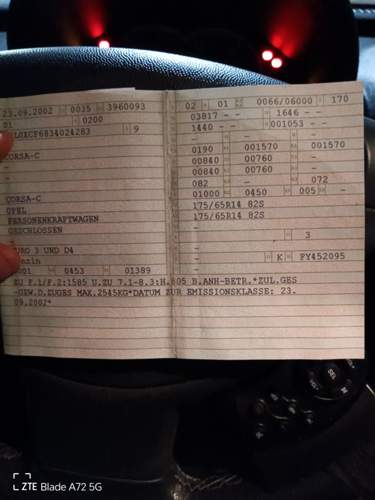 23.09.2002 0035 3960093
01 0200
9
CORSA-C
-
CORSA-C
OPEL
PERSONENKRAFTWAGEN
GESCHLOSSEN
EURO 3 UND D4
Benzin
0001 0453 01389
02 01 0066/06000 170
03817 - - 1646 - -
1440 - - 001053 - -
- - -
0190 001570 001570
00840 00760 -
00840 00760 -
082 - 072
01000 0450 005 -
175/65R14 82S
175/65R14 82S
-
- 3
-
- K FY452095
ZU F.1/F.2:1585 U.ZU 7.1-8.3:H.805 B.ANH-BETR.*ZUL.GES
-GEW.D.ZUGES MAX.2545KG*DATUM ZUR EMISSIONSKLASSE: 23.
09.2002*
ZTE Blade A72 5G